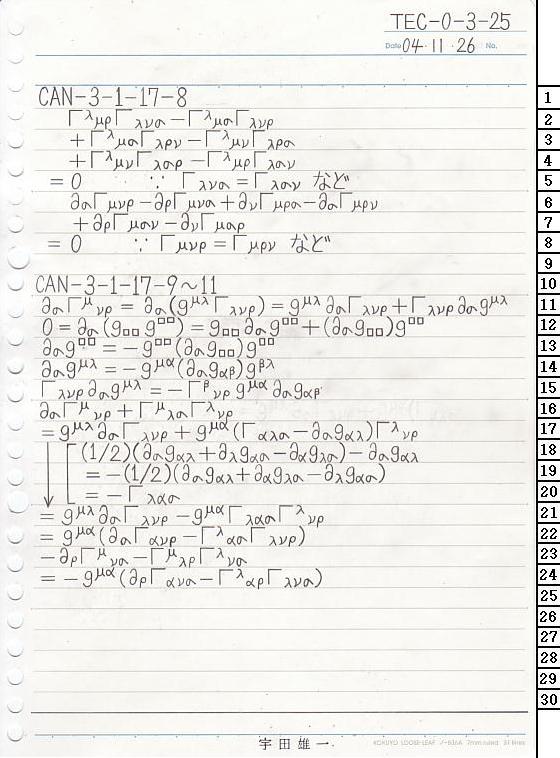 TEC-0-3-25
Date 04・11・26 No.
CAN-3-1-17-8
Γ^λ_μρ Γ_λνσ − Γ^λ_μσ Γ_λνρ
+ Γ^λ_μσ Γ_λρν − Γ^λ_μν Γ_λρσ
+ Γ^λ_μν Γ_λσρ − Γ^λ_μρ Γ_λσν
= 0 ∵ Γ_λνσ = Γ_λσν など
∂σΓμνρ − ∂ρΓμνσ + ∂νΓμρσ − ∂σΓμρν
+ ∂ρΓμσν − ∂νΓμσρ
= 0 ∵ Γμνρ = Γμρν など
CAN-3-1-17-9~11
∂σΓ^μ_νρ = ∂σ(g^μλ Γ_λνρ) = g^μλ ∂σΓ_λνρ + Γ_λνρ ∂σg^μλ
0 = ∂σ(g_□□ g^□□) = g_□□ ∂σg^□□ + (∂σg_□□)g^□□
∂σg^□□ = −g^□□(∂σg_□□)g^□□
∂σg^μλ = −g^μα(∂σg_αβ)g^βλ
Γ_λνρ ∂σg^μλ = −Γ^β_νρ g^μα ∂σg_αβ
∂σΓ^μ_νρ + Γ^μ_λσ Γ^λ_νρ
= g^μλ ∂σΓ_λνρ + g^μα(Γ_αλσ − ∂σg_αλ)Γ^λ_νρ
(1/2)(∂σg_αλ + ∂λg_ασ − ∂αg_λσ) − ∂σg_αλ
= −(1/2)(∂σg_αλ + ∂αg_λσ − ∂λg_ασ)
= −Γ_λασ
= g^μλ ∂σΓ_λνρ − g^μα Γ_λασ Γ^λ_νρ
= g^μα(∂σΓ_ανρ − Γ^λ_ασ Γ_λνρ)
−∂ρΓ^μ_νσ − Γ^μ_λρ Γ^λ_νσ
= −g^μα(∂ρΓ_ανσ − Γ^λ_αρ Γ_λνσ)
宇田雄一
KOKUYO LOOSE-LEAF ノ-836A 7mm ruled 31 lines
1
2
3
4
5
6
7
8
9
10
11
12
13
14
15
16
17
18
19
20
21
22
23
24
25
26
27
28
29
30